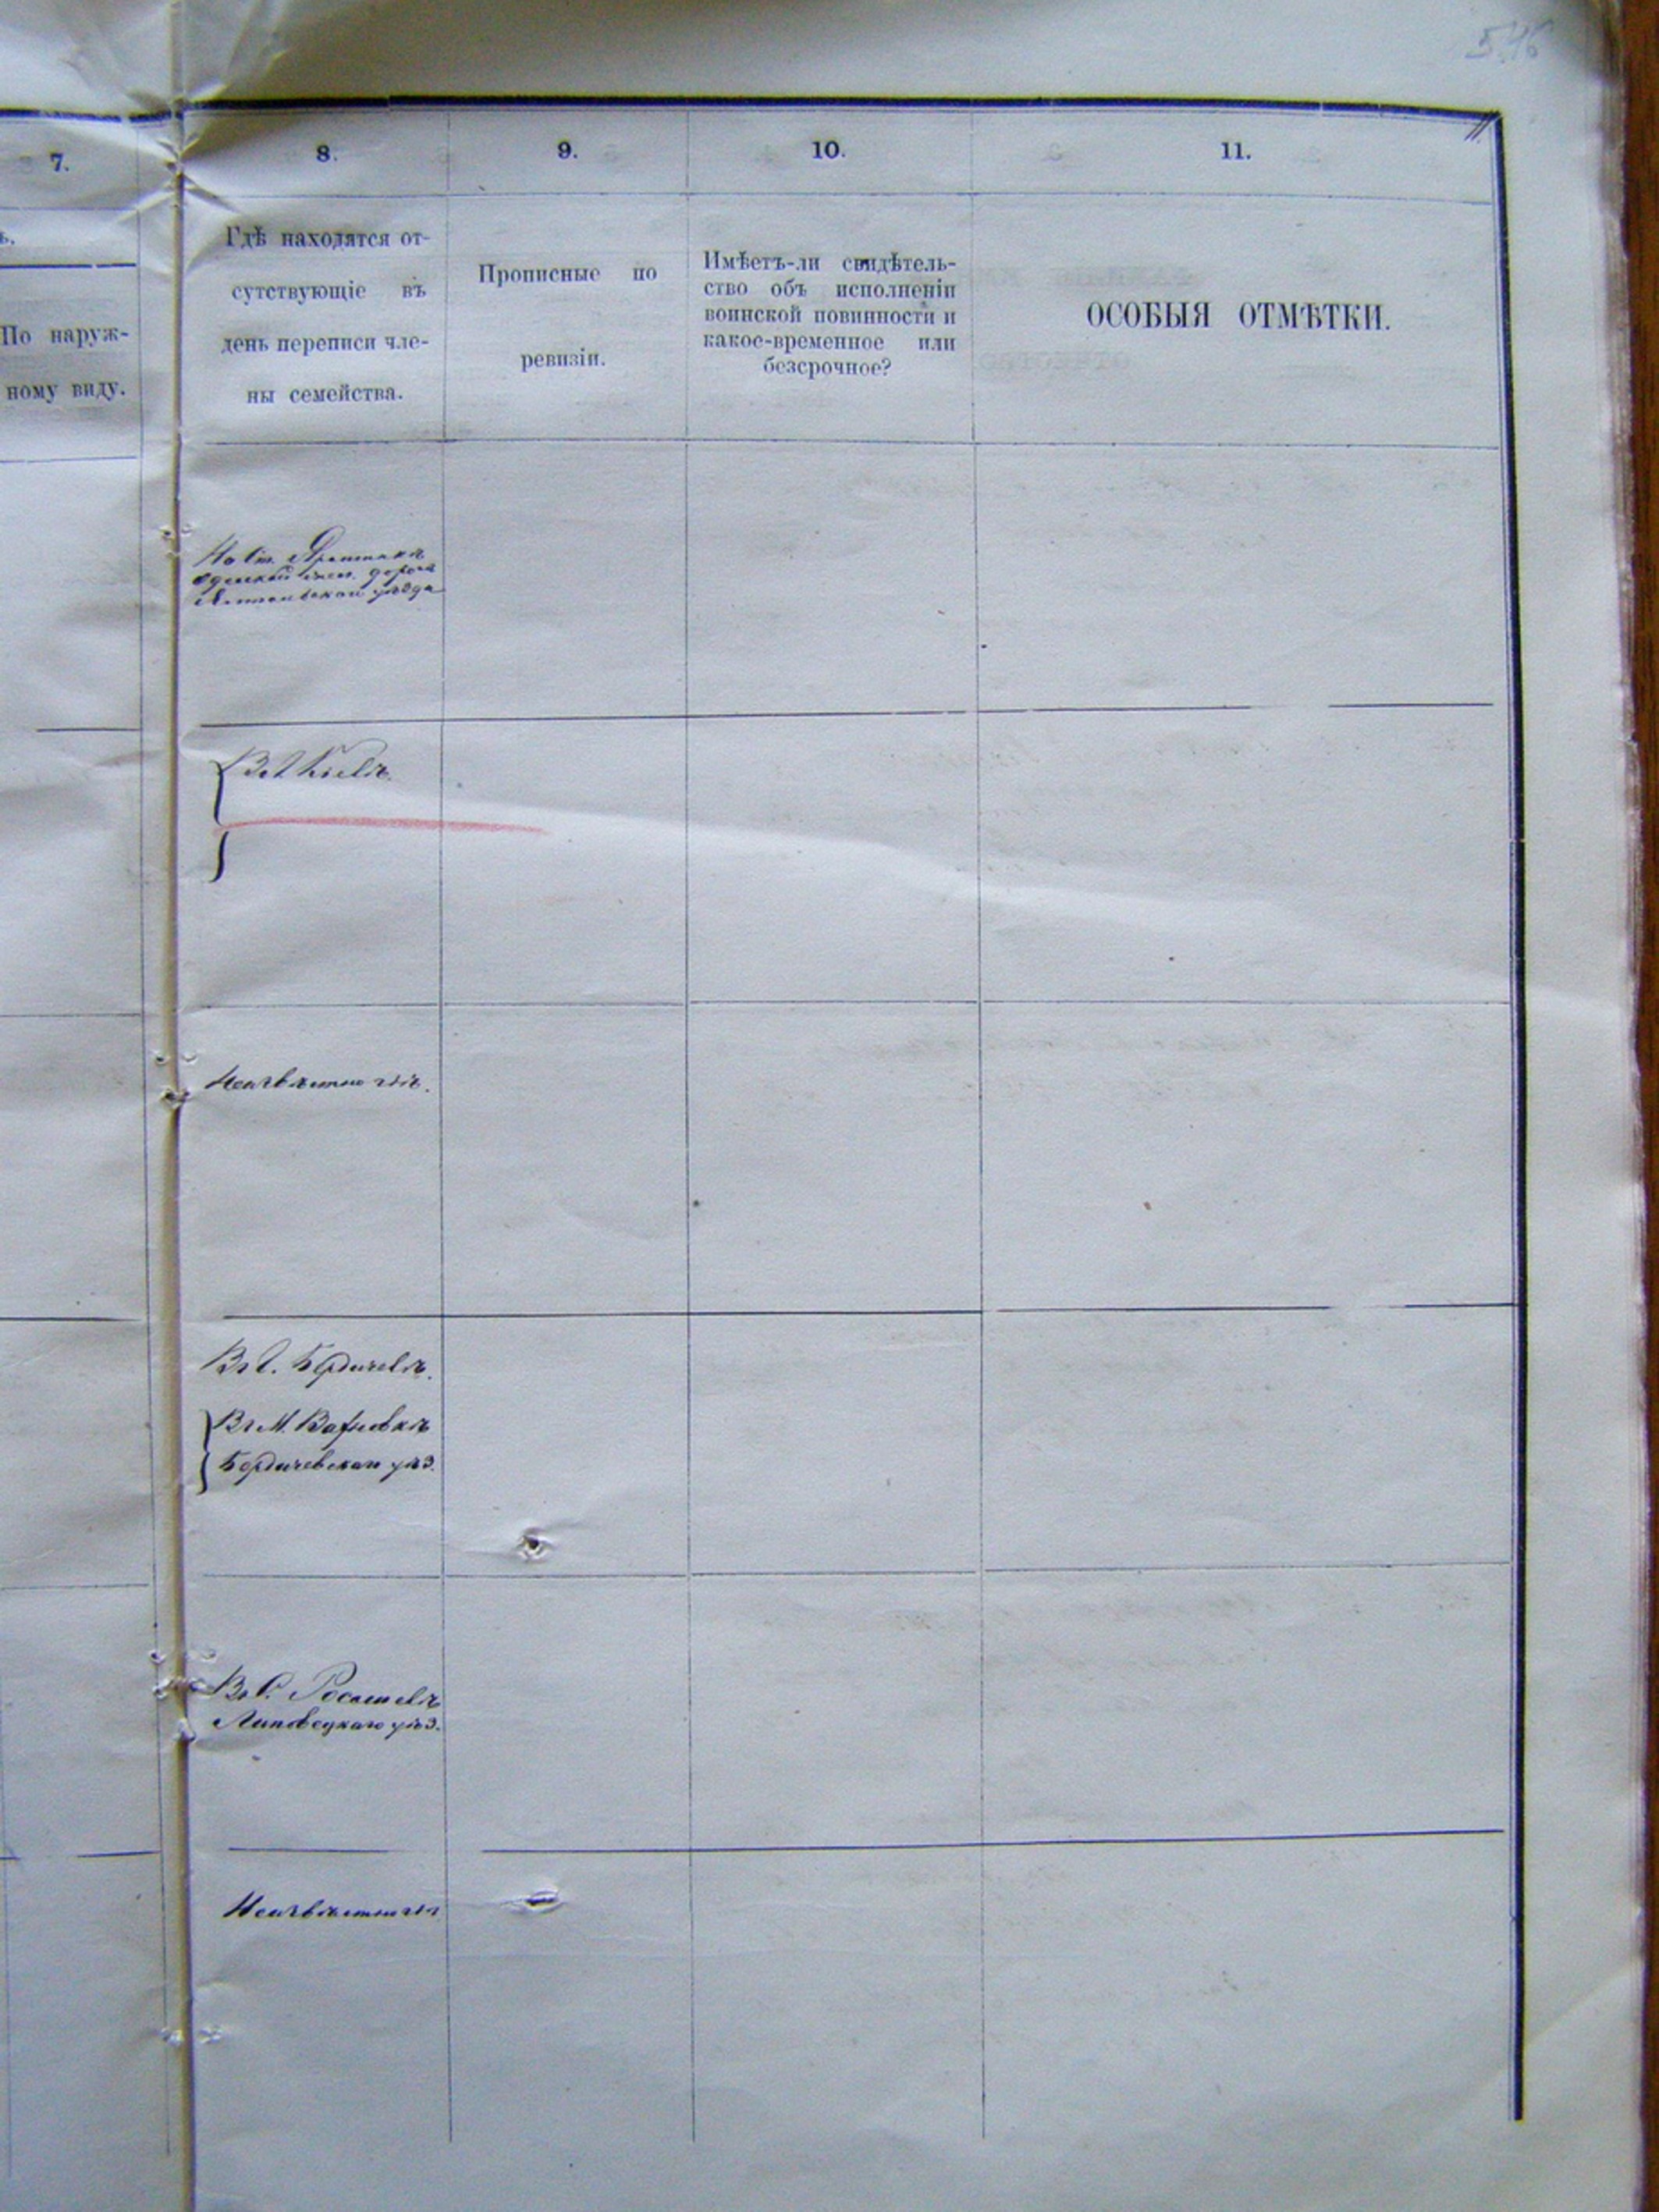 546
7.
8.
9.
10.
11.
11.
ъ.
По наруж-
ному виду.
Гдѣ находятся от-
сутствующіе въ
день переписи чле-
ны семейства.
Прописные по
ревизіи.
Имѣетъ-ли свидѣтель-
ство объ исполненіи
воинской повинности и
какое-временное или
безсрочное?
ОСОБЫЯ ОТМѢТКИ.
На Ст.
Одеской жел. дороги
уѣзда
Въ г. Кіевѣ.
Неизвѣстно гдѣ.
Въ г. Бердичевѣ.
Въ М.
Бердичевскаго уѣз.
Въ С. Росошевѣ
Липовецкаго уѣз.
Неизвѣстно гдѣ